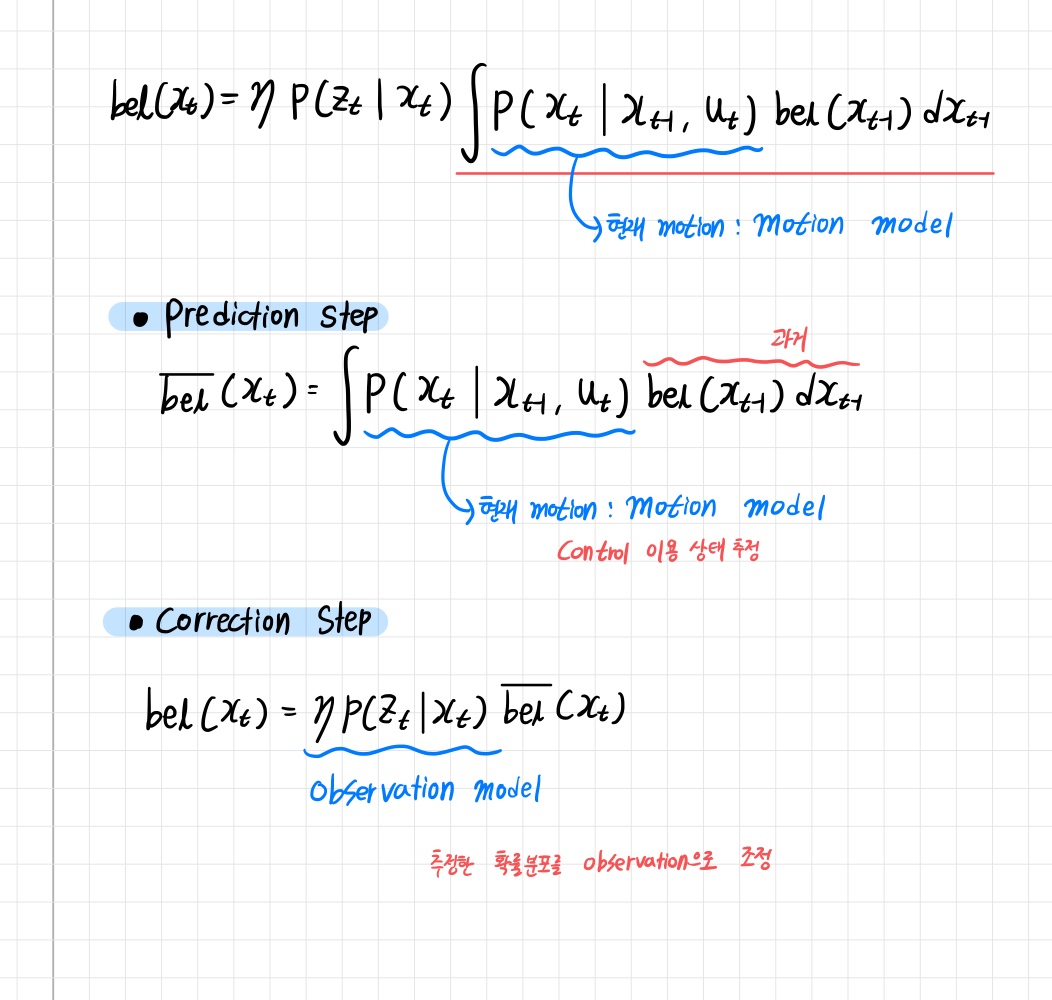 bel(xₜ) = η P(zₜ | xₜ) ∫ P(xₜ | xₜ₋₁, uₜ) bel(xₜ₋₁) dxₜ₋₁
현재 motion : Motion model
• Prediction Step
과거
b̅e̅l̅(xₜ) = ∫ P(xₜ | xₜ₋₁, uₜ) bel(xₜ₋₁) dxₜ₋₁
현재 motion : Motion model
Control 이용 상태 추정
• Correction Step
bel(xₜ) = η P(zₜ | xₜ) b̅e̅l̅(xₜ)
Observation model
추정한 확률분포를 observation으로 조정